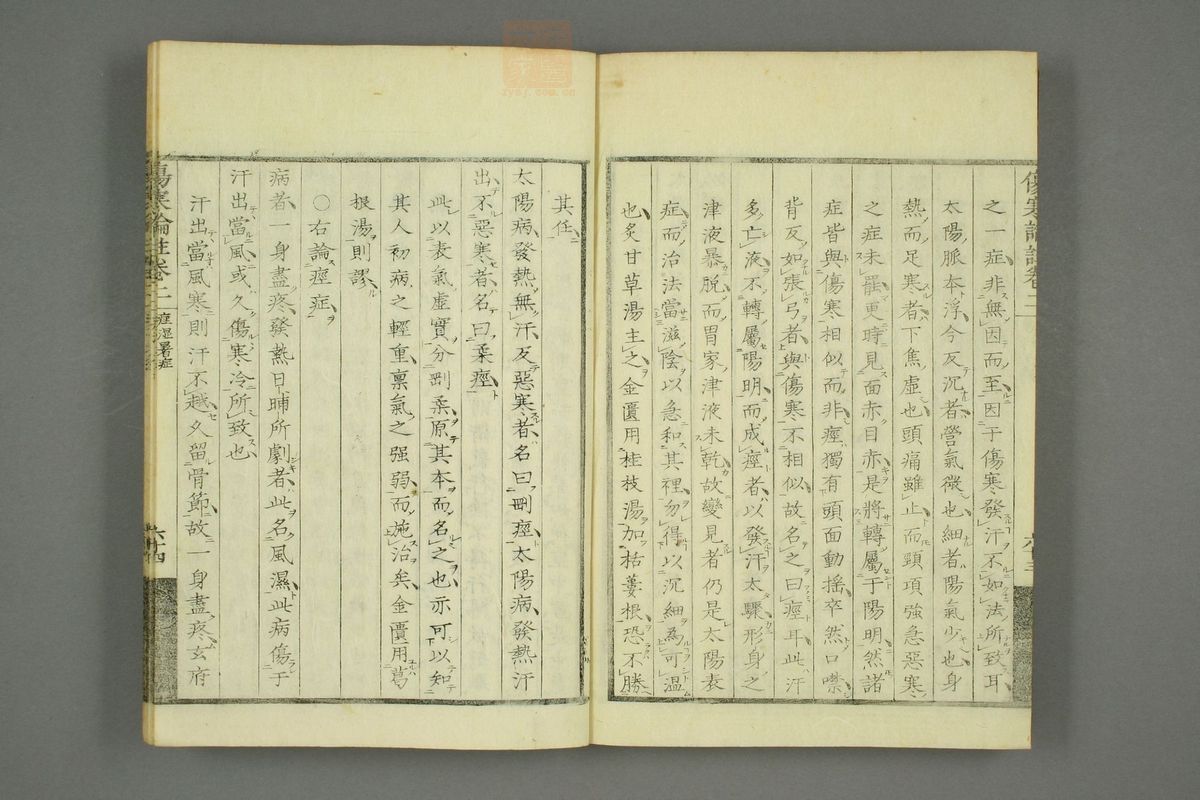 之一症非無因而至因于傷寒發汗不如法所致耳
太陽脈本浮今反沉者營氣微也細者陽氣少也身
熱而足寒者下焦虛也頭痛雖止而頸項強急惡寒
之症未罷更時見面赤目赤是將轉屬于陽明然諸
症皆與傷寒相似而非痙獨有頭面動搖卒然口噤
背反如張弓者與傷寒不相似故名之曰痙耳此汗
多亡液不轉屬陽明而成痙者以發汗太驟形身之
津液暴脫而胃家津液未乾故變見者仍是太陽表
症而治法當滋陰以急和其裡勿得以沉細為可溫
也炙甘草湯主之金匱用桂枝湯加栝蔞根恐不勝
其任
太陽病發熱無汗反惡寒者名曰剛痙太陽病發熱汗
出不惡寒者名曰柔痙
此以表氣虛實分剛柔原其本而名之也亦可以知
其人初病之輕重稟氣之强弱而施治矣金匱用葛
根湯則謬
〇右論痙症
病者一身盡疼發熱日晡所劇者此名風濕此病傷于
汗出當風或久傷寒冷所致也
汗出當風寒則汗不越久留骨節故一身盡疼玄府
傷寒論註卷二 痙濕暑症
六十四